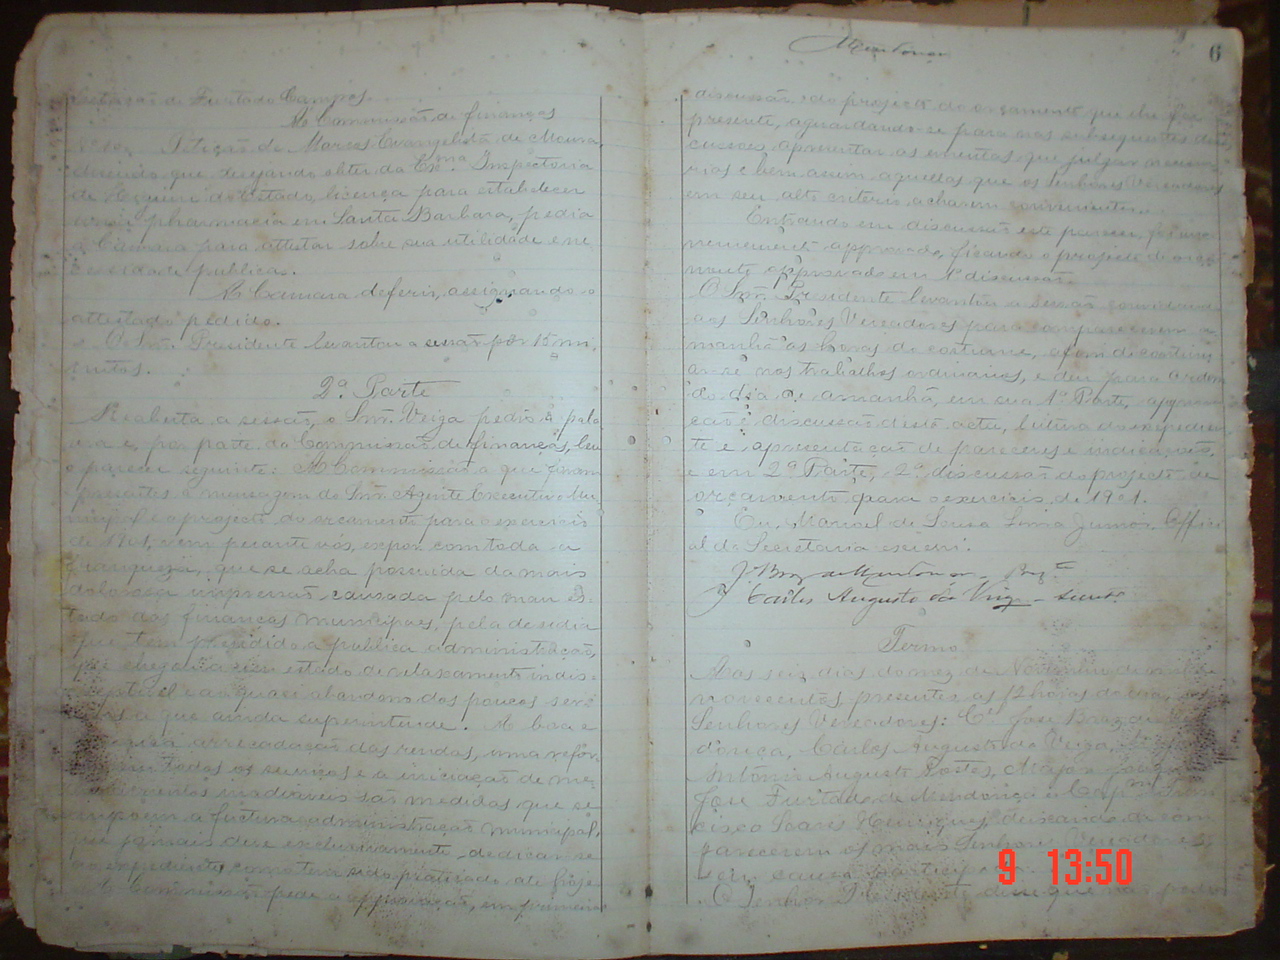 Estação de Furtado Campos.
A Commissão de finanças
Petição de Marcos Evangelista de Moura,
dizendo que desejando obter da Exma. Inspectoria
de Hygiene do Estado, licença para estabelecer
uma pharmacia em Santa Barbara, pedia
a Camara para attestar sobre sua utilidade e ne
cessidade publicas.
A Camara deferiu, assignando o
attestado pedido.
O Snr. Presidente levantou a sessão por 15 mi
nutos.
2ª Parte
Reaberta a sessão, o Snr. Veiga pediu a pala
vra e, por parte da Commissão de finanças, leu
o parecer seguinte: A Commissão a que foram
presentes a mensagem do Snr. Agente Executivo Mu
nicipal e o projecto do orçamento para o exercicio
de 1901, vem perante vós, expor com toda a
franqueza, que se acha possuida da mais
dolorosa impressão causada pelo mau es
tado das finanças municipaes, pela desidia
que tem presidido a publica administração,
que chegou a um estado de relaxamento indes
criptivel e ao quasi abandono dos poucos servi
ços a que ainda superintende. A boa e
arrecadação das rendas, uma refor
todos os serviços e a iniciação de me
lhoramentos inadiaveis são medidas que se
impõem a futura administração municipal,
que jamais deve exclusivamente dedicar-se
ao expediente, como tem sido praticado até hoje.
A Commissão pede a approvação, em primeira
6
discussão do projecto do orçamento que lhe foi
presente, aguardando-se para nas subsequentes dis
cussões apresentar as emendas que julgar necessa
rias e bem assim aquellas que os Senhores Vereadores
em seu alto criterio acharem convenientes.
Entrando em discussão este parecer, foi una
nimemente approvado, ficando o projecto de orça
mento approvado em 1ª discussão.
O Snr. Presidente levantou a sessão convidando
aos Senhores Vereadores para comparecerem a
manhã as horas do costume, afim de continu
ar-se nos trabalhos ordinarios, e deu para ordem
do dia de amanhã, em sua 1ª Parte, approva
ção e discussão desta acta, leitura do expedien
te e apresentação de pareceres e indicações,
e em 2ª Parte, 2ª discussão do projecto de
orçamento para o exercicio de 1901.
Eu, Manoel de Sousa Lima Junior, Offici
al da Secretaria escrevi.
J. Braz de Mendonça
Carlos Augusto da Veiga - secret.
Termo
Aos seis dias do mez de Novembro de mil e
novecentos, presentes, as 12 horas do dia, os
Senhores Vereadores: José Braz de Men
donça, Carlos Augusto da Veiga,
Antonio Augusto Major
José Furtado de Mendonça e Capm. Fran
cisco Soares Henriques, deixando de com
parecerem os mais Senhores Vereadores,
sem causa
O Senhor Presidente disse que não
9 13:50